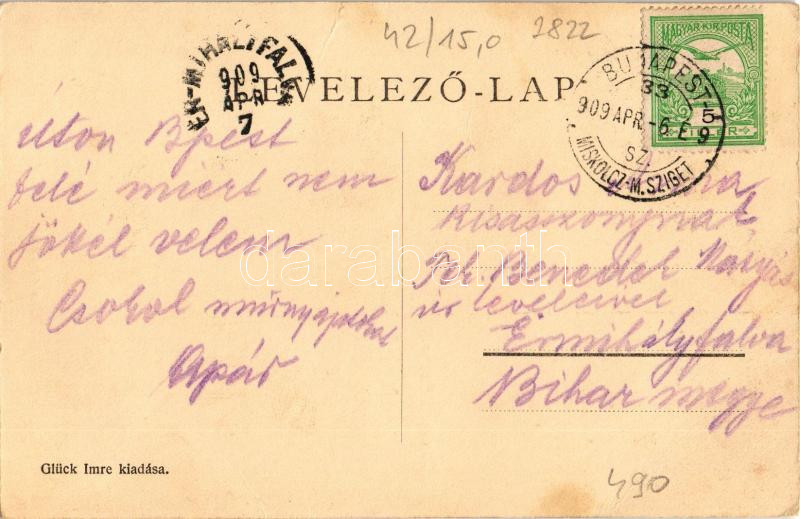 42/15,0 2822
ÉR-MIHÁLYFALVA
909
ÁPR
7
LEVELEZŐ-LAP
MAGYAR KIR. POSTA
BUDAPEST
33
909 APR.-6. E
5
9
SZ.
MISKOLCZ-M.SZIGET
Uton Bpest
felé miért nem
jöttél velem
Csokol mindnyájatokat
Apád
Kardos
Kisasszonynak
Benedek
úr levelével
Érmihályfalva
Bihar megye
darabanth
Glück Imre kiadása.
490